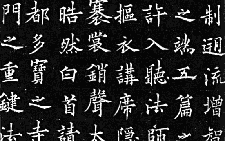 制迴流增
之端五篇之
許入聽法師
摳衣講席隱
褰裳銷聲太
皓然白首請
都多寶之寺
門之重鍵法